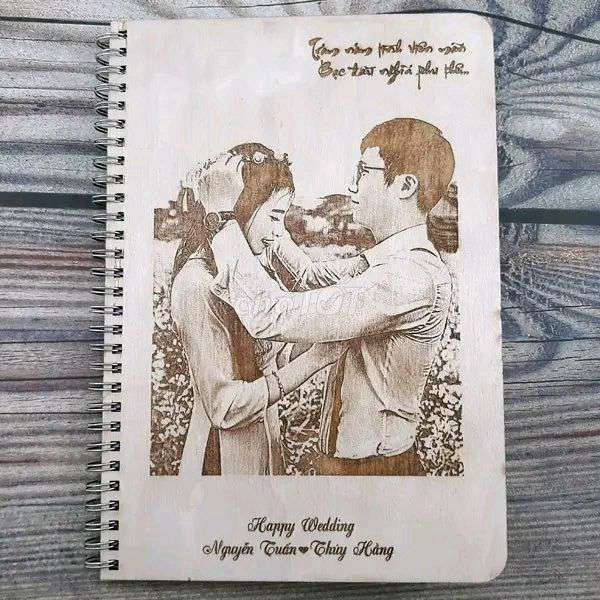 Trăm năm tình viên mãn
Bạc đầu nghĩa phu thê...
Happy Wedding
Nguyễn Tuấn❤Thúy Hằng